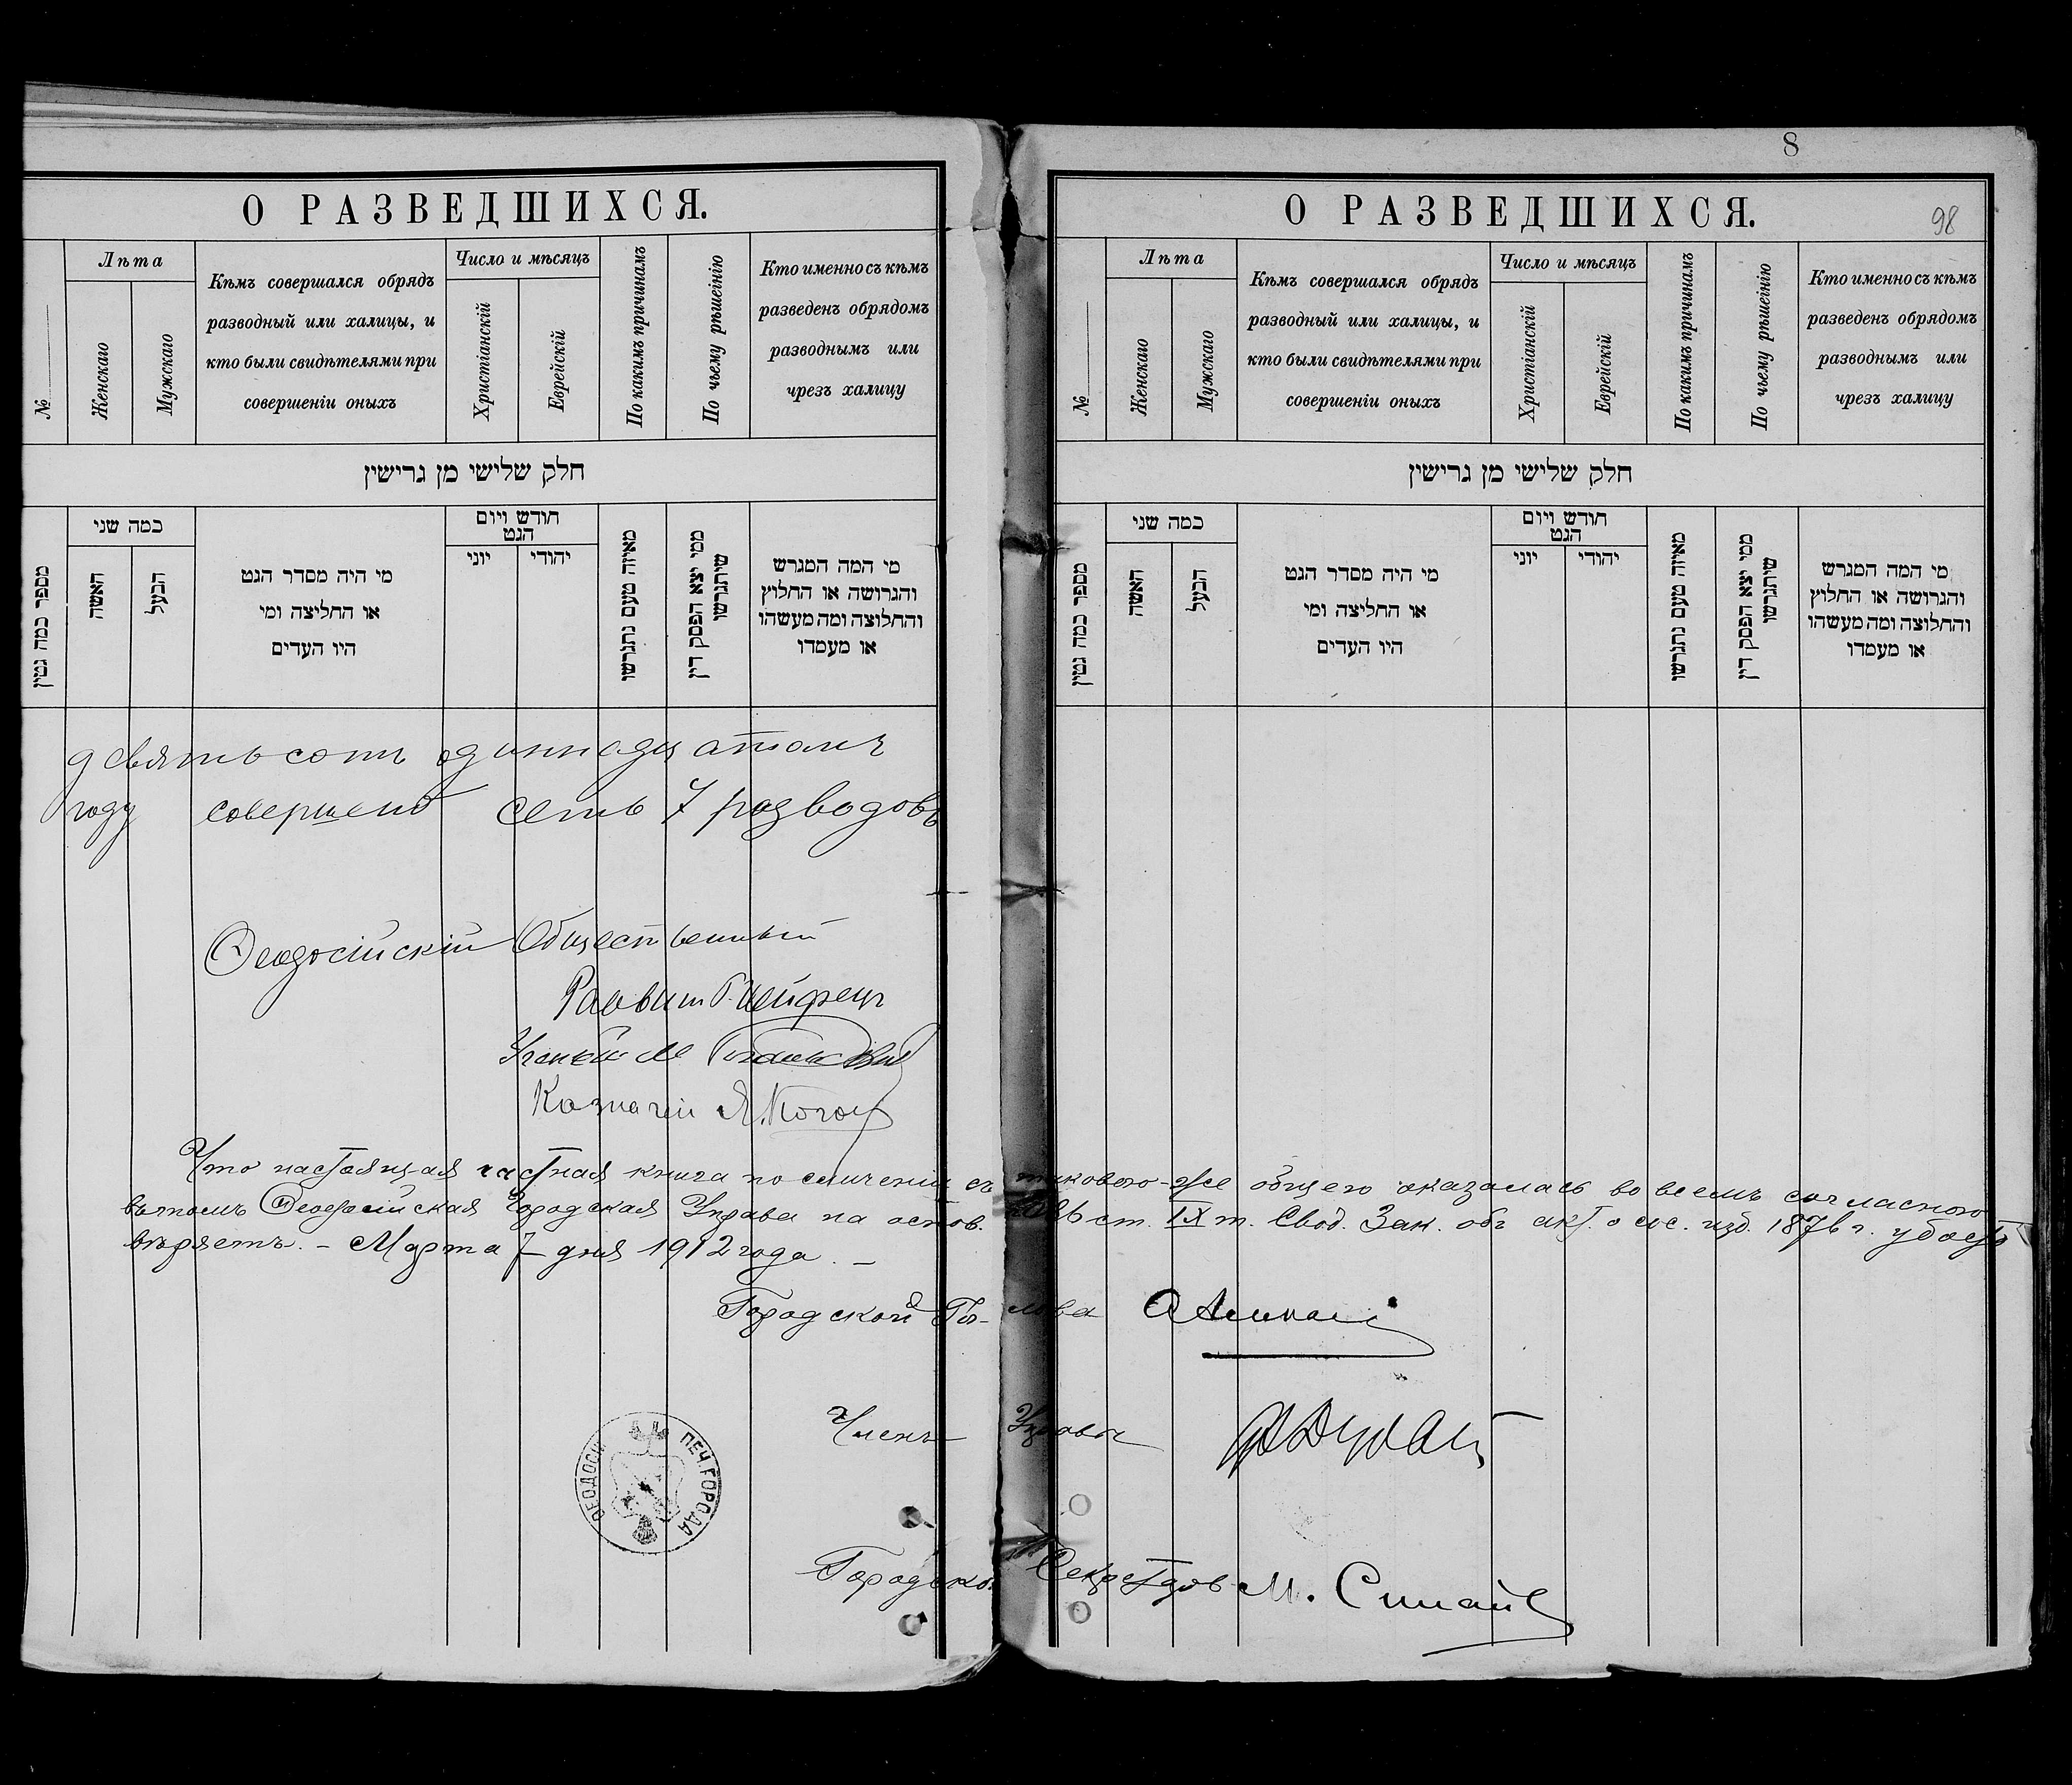 О РАЗВЕДШИХСЯ.
№
Лѣта
Женскаго
Мужскаго
Кѣмъ совершался обрядъ
разводный или халицы, и
кто были свидѣтелями при
совершеніи оныхъ
Число и мѣсяцъ
Христіанскій
Еврейскій
По какимъ причинамъ
По чьему рѣшеінію
Кто именно съ кѣмъ
разведенъ обрядомъ
разводнымъ или
чрезъ халицу
חלק שלישי מן גרישין
מספר כמה גטין
כמה שני
האשה
הבעל
מי היה מסדר הגט
או החליצה ומי
היו העדים
חודש ויום
הגט
יוני
יהודי
מאיזה טעם נתגרשו
ממי יצא הפסק דין
שיתגרשו
מי המה המגרש
והגרושה או החלוץ
והחלוצה ומה מעשהו
או מעמדו
девятьсотъ одиннадцатомъ
году совершено семь 7 разводовъ
Ѳеодосійскій Общественный
Раввинъ Г. Шейфецъ
Ученый М
Казначей Я. Коган
Что настоящая частная книга по сличеніи съ таковою-же общею оказалась во всемъ согласною
въ томъ Ѳеодосійская Городская Управа на основ. ст. IX т. Свод. Зак. объ акт. о сос. изд. 1876 г. удосто
вѣряетъ. – Марта 7 дня 1912 года. –
Городской Голова
Членъ Управы
ѲЕОДОСІИ ПЕЧ. ГОРОДА
Городской Секретарь М. Синани
8
О РАЗВЕДШИХСЯ.
98
№
Лѣта
Женскаго
Мужскаго
Кѣмъ совершался обрядъ
разводный или халицы, и
кто были свидѣтелями при
совершеніи оныхъ
Число и мѣсяцъ
Христіанскій
Еврейскій
По какимъ причинамъ
По чьему рѣшеінію
Кто именно съ кѣмъ
разведенъ обрядомъ
разводнымъ или
чрезъ халицу
חלק שלישי מן גרישין
מספר כמה גטין
כמה שני
האשה
הבעל
מי היה מסדר הגט
או החליצה ומי
היו העדים
חודש ויום
הגט
יוני
יהודי
מאיזה טעם נתגרשו
ממי יצא הפסק דין
שיתגרשו
מי המה המגרש
והגרושה או החלוץ
והחלוצה ומה מעשהו
או מעמדו